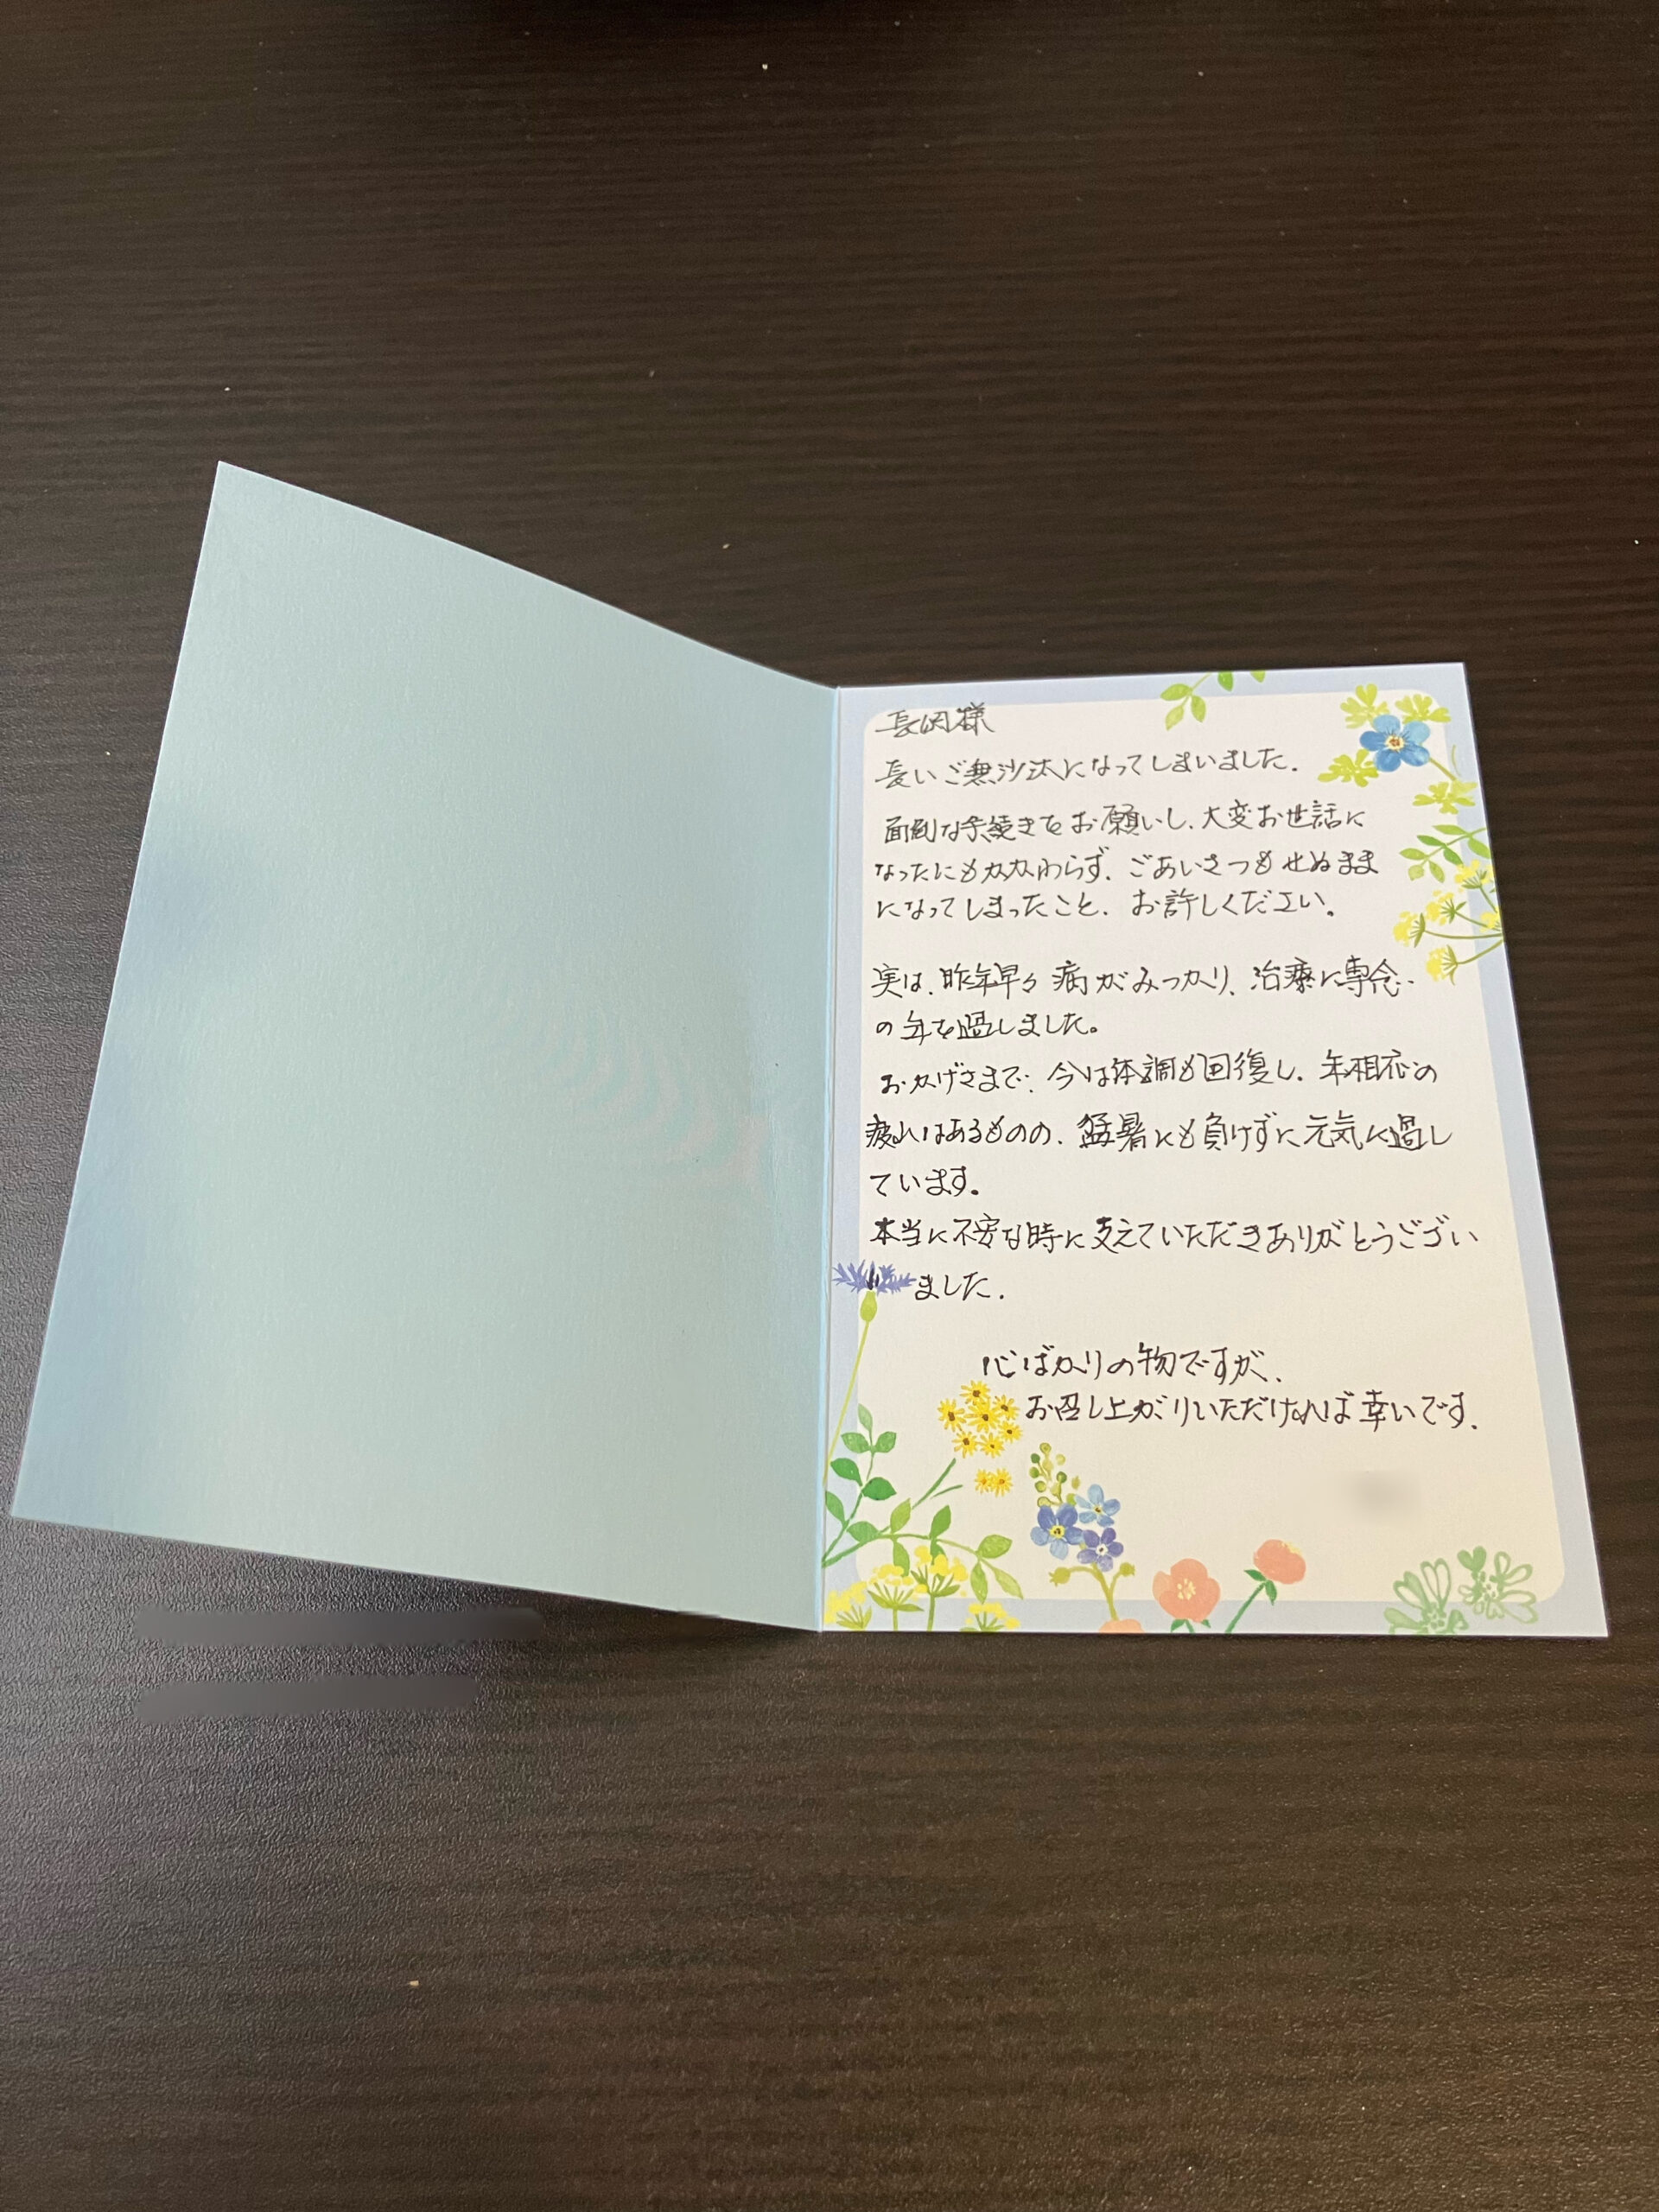 長岡様
長いご無沙汰になってしまいました.
面倒な手続きをお願いし、大変お世話に
なったにもかかわらず、ごあいさつもせぬまま
になってしまったこと、お許しください。
実は、昨年早々病がみつかり、治療に専念
の年を過しました。
おかげさまで、今は体調も回復し、年相応の
疲れはあるものの、猛暑にも負けずに元気に過し
ています。
本当に不安な時に支えていただきありがとうござい
ました.
心ばかりの物ですが、
お召し上がりいただければ幸いです.